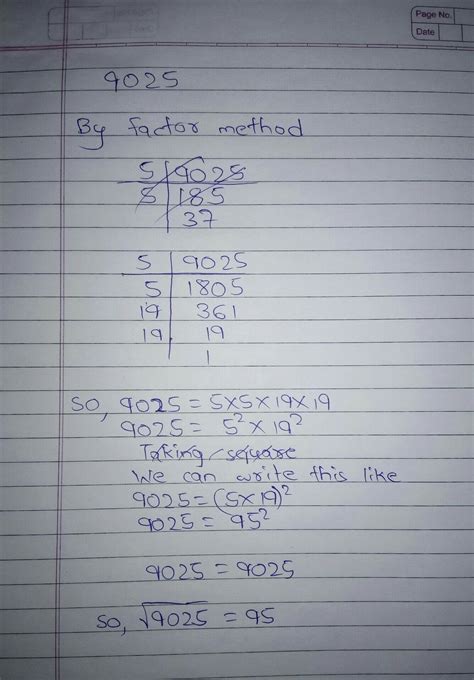 Page No.
Date
9025
By factor method
5 | 9025
5 | 185
37
5 | 9025
5 | 1805
19 | 361
19 | 19
1
So, 9025 = 5×5×19×19
9025 = 5² × 19²
Taking square
We can write this like
9025 = (5×19)²
9025 = 95²
9025 = 9025
so, √9025 = 95